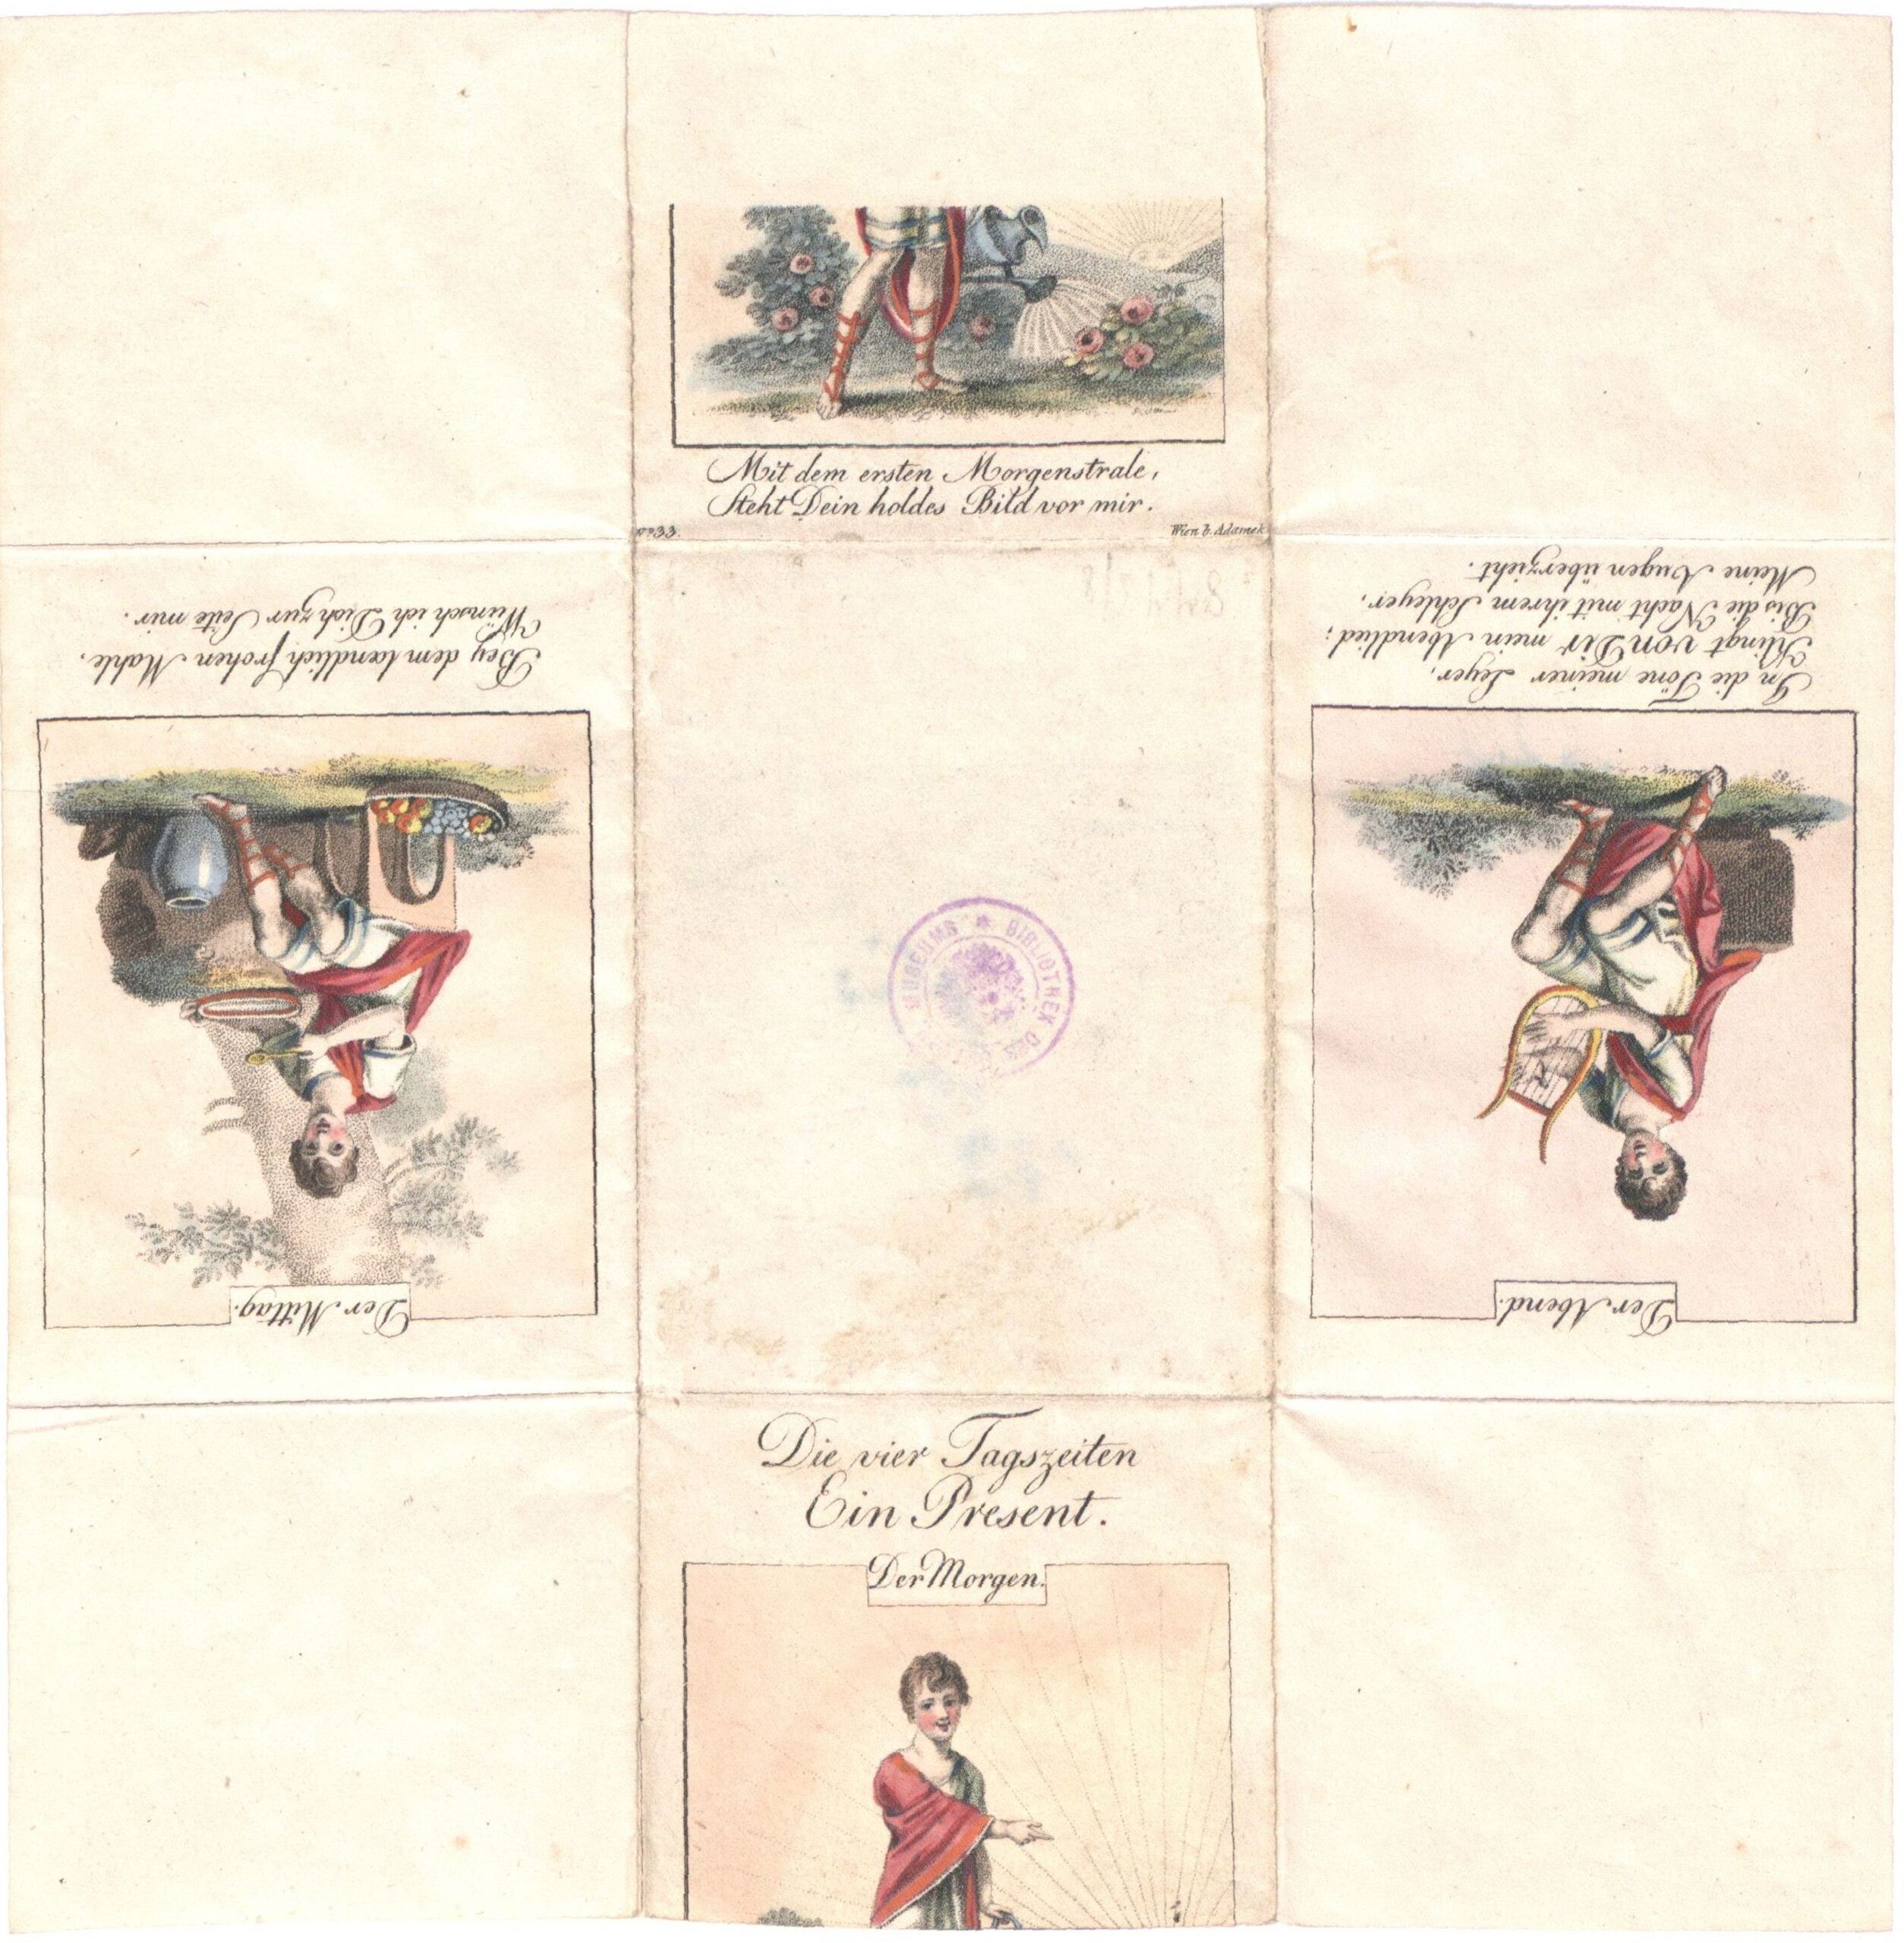 Mit dem ersten Morgenstrale,
Steht Dein holdes Bild vor mir.
No 33.
Wien b. Adamek
Bey dem lændlich frohen Mahle,
Wünsch ich Dich zur Seite mir.
Der Mittag.
In die Töne meiner Leyer,
Klingt von Dir mein Abendlied;
Bis die Nacht mit ihrem Schleyer,
Meine Augen überzieht.
Der Abend.
BIBLIOTHEK DES
MUSEUMS
Die vier Tagszeiten
Ein Present.
Der Morgen.